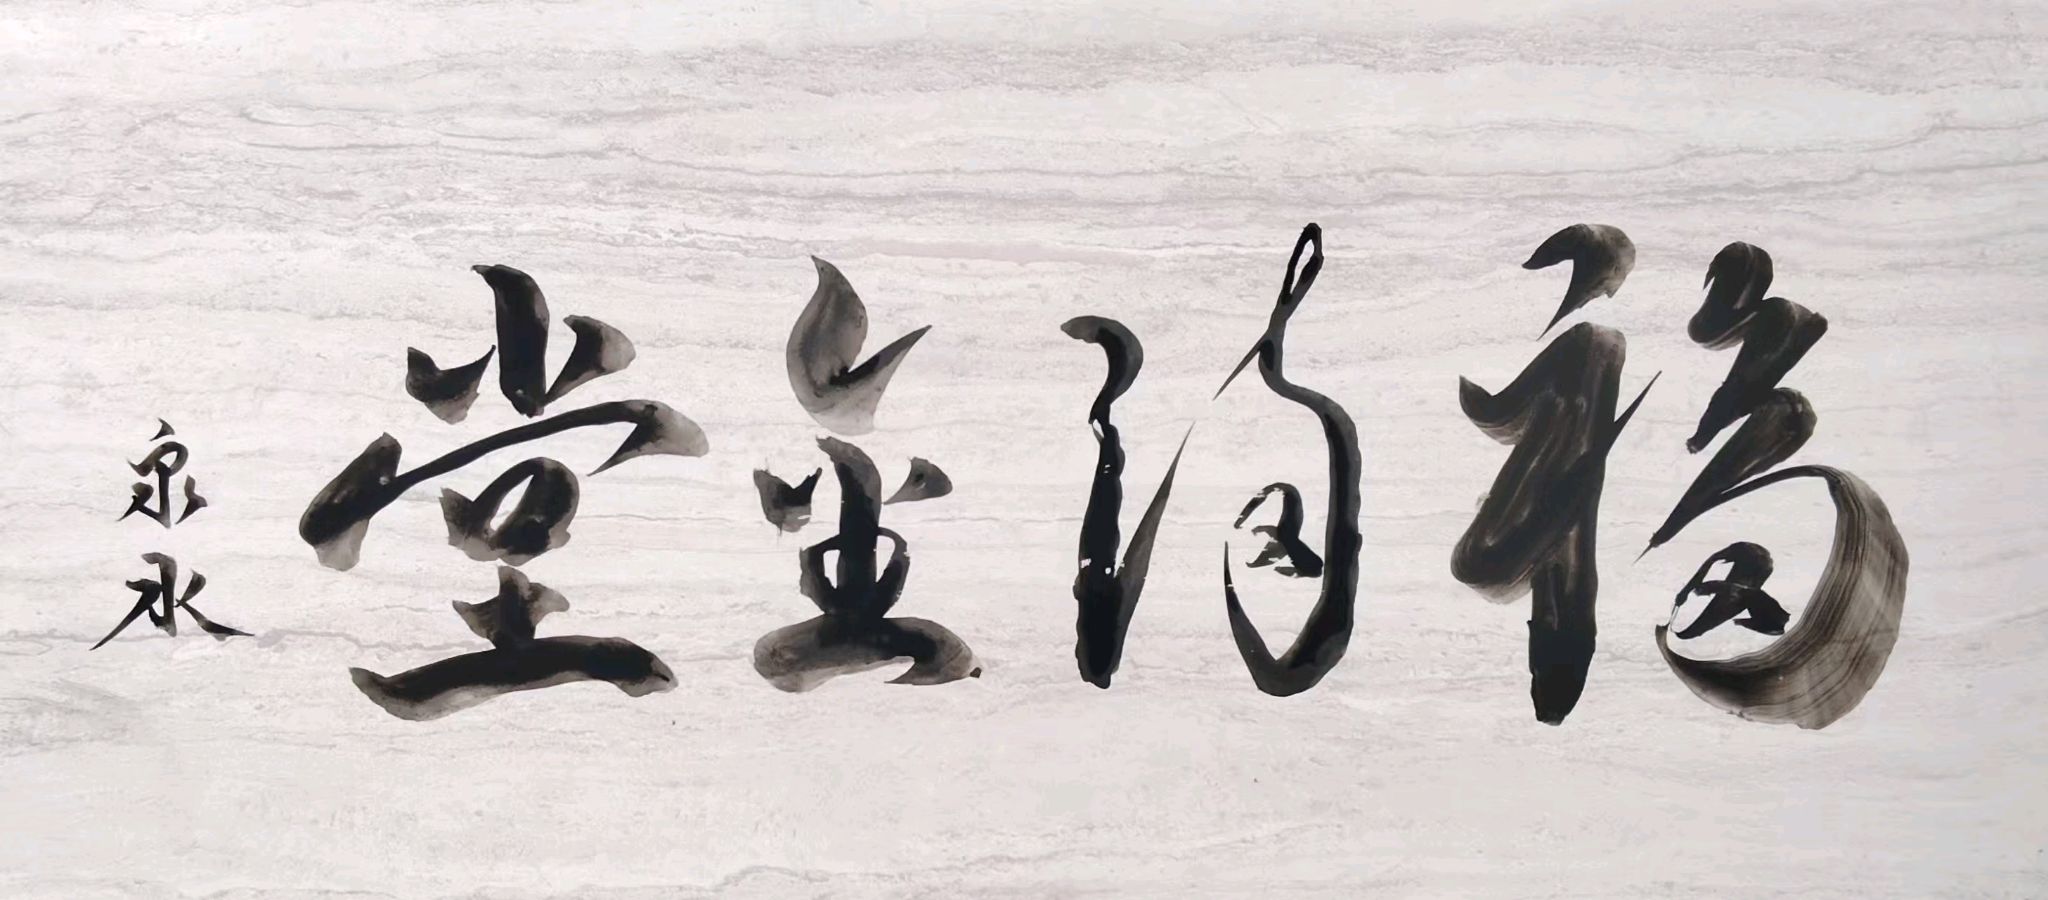 福满金堂
泉水